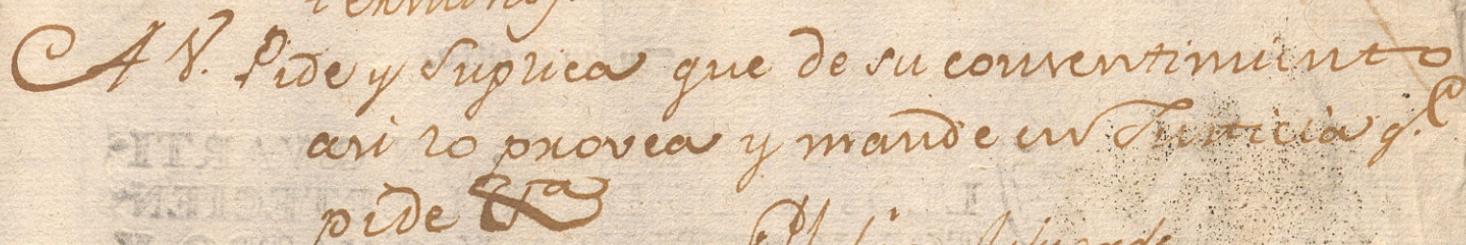 A V. Pide y Suplica que de su consentimiento
asi lo provea y mande en Justicia q.e
pide &ra